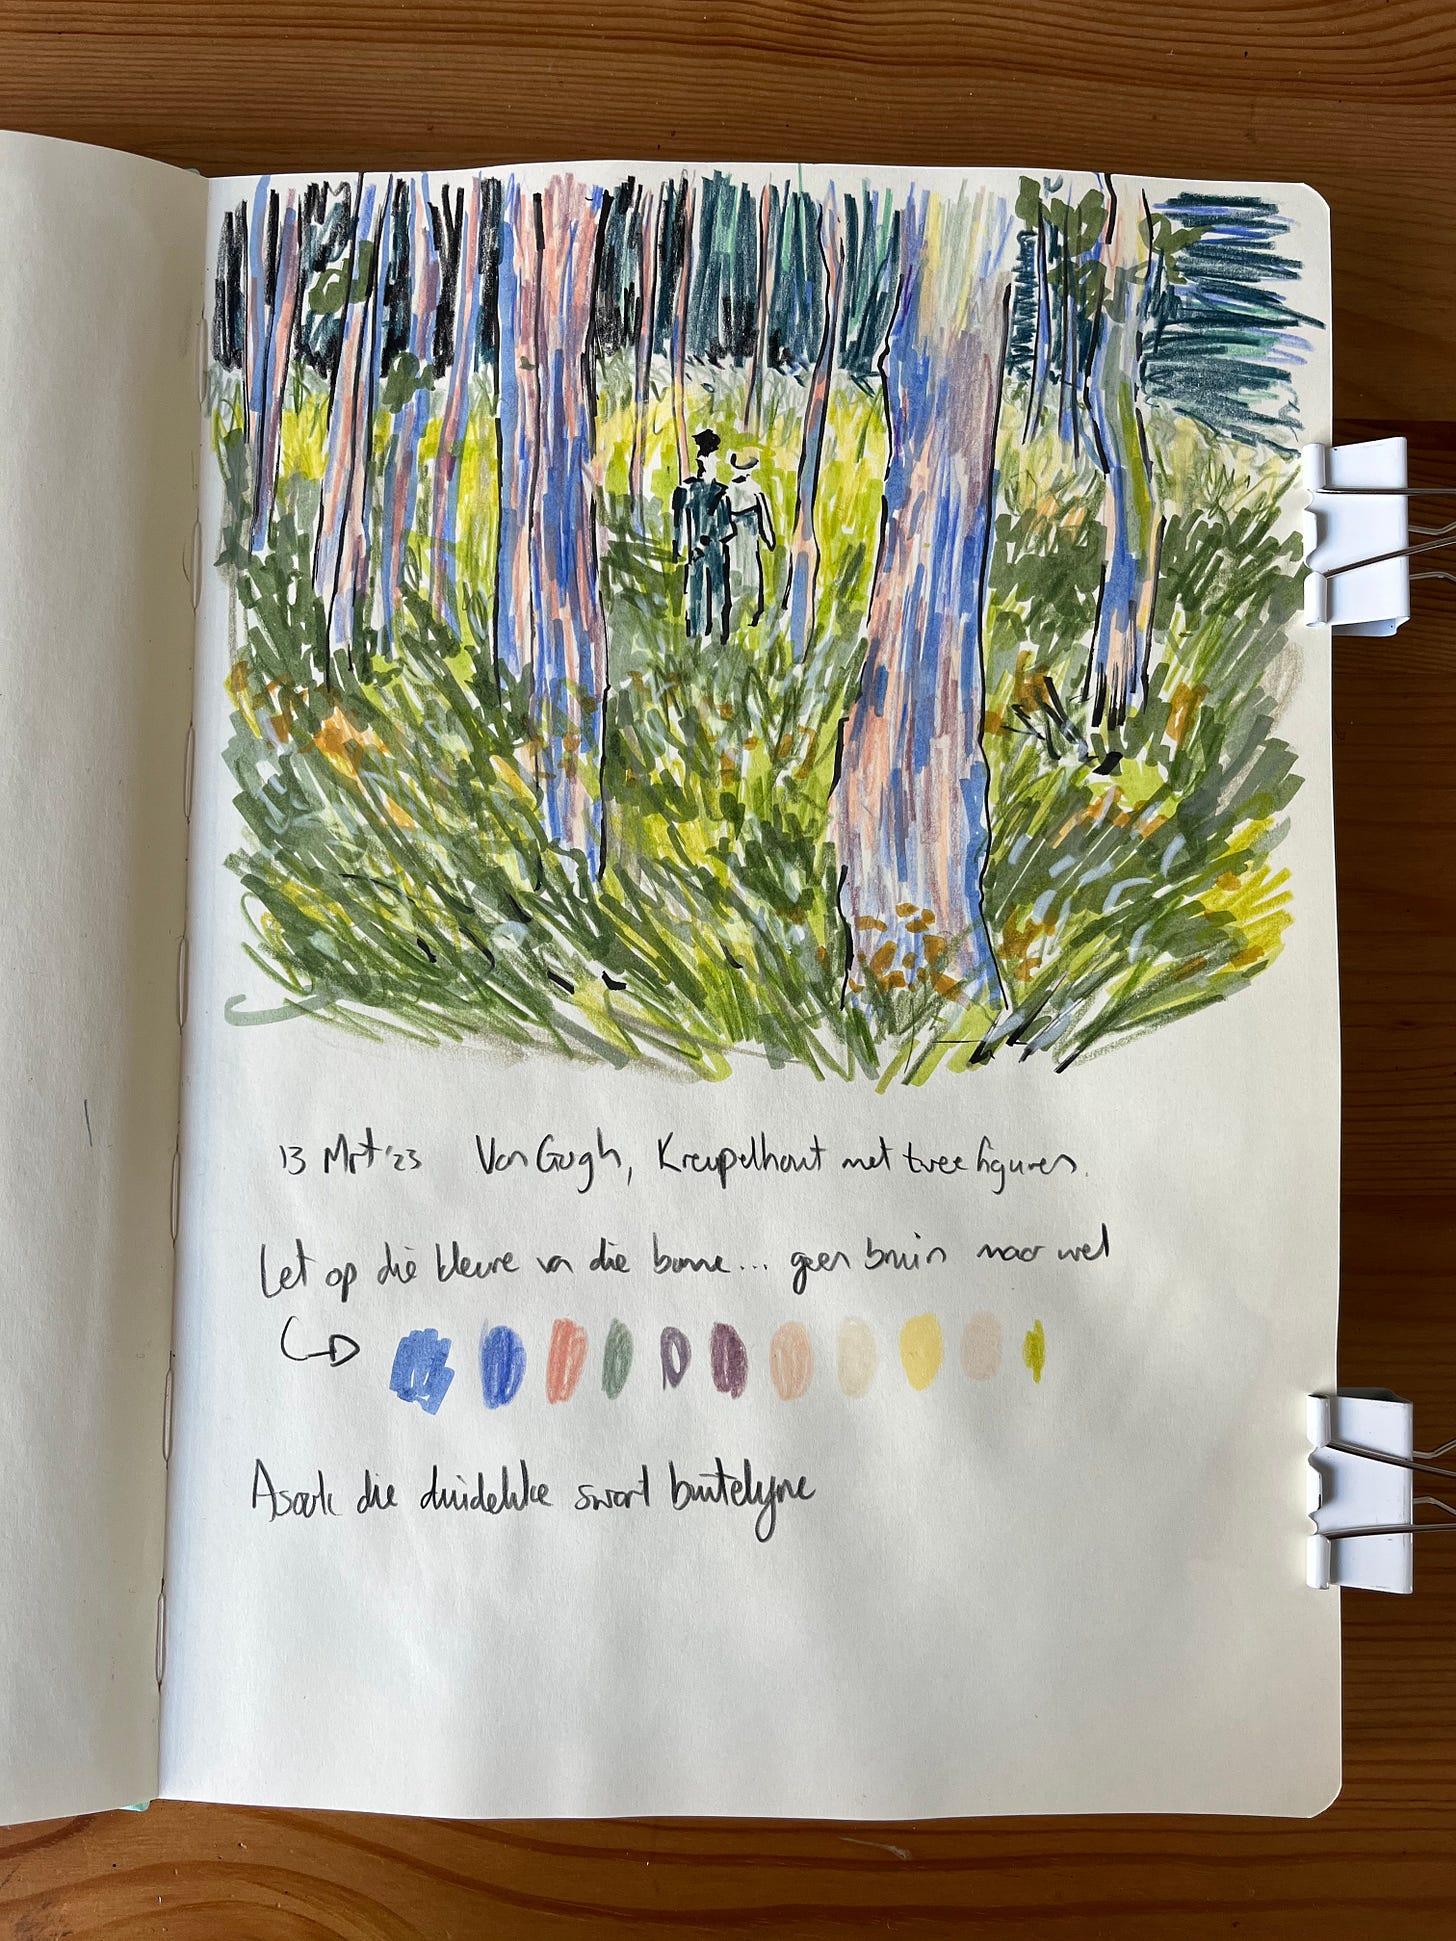 13 Mrt '23 Van Gogh, Kreupelhout met twee figuren.
Let op die kleure van die bome... geen bruin maar wel
Asook die duidelike swart buitelyne